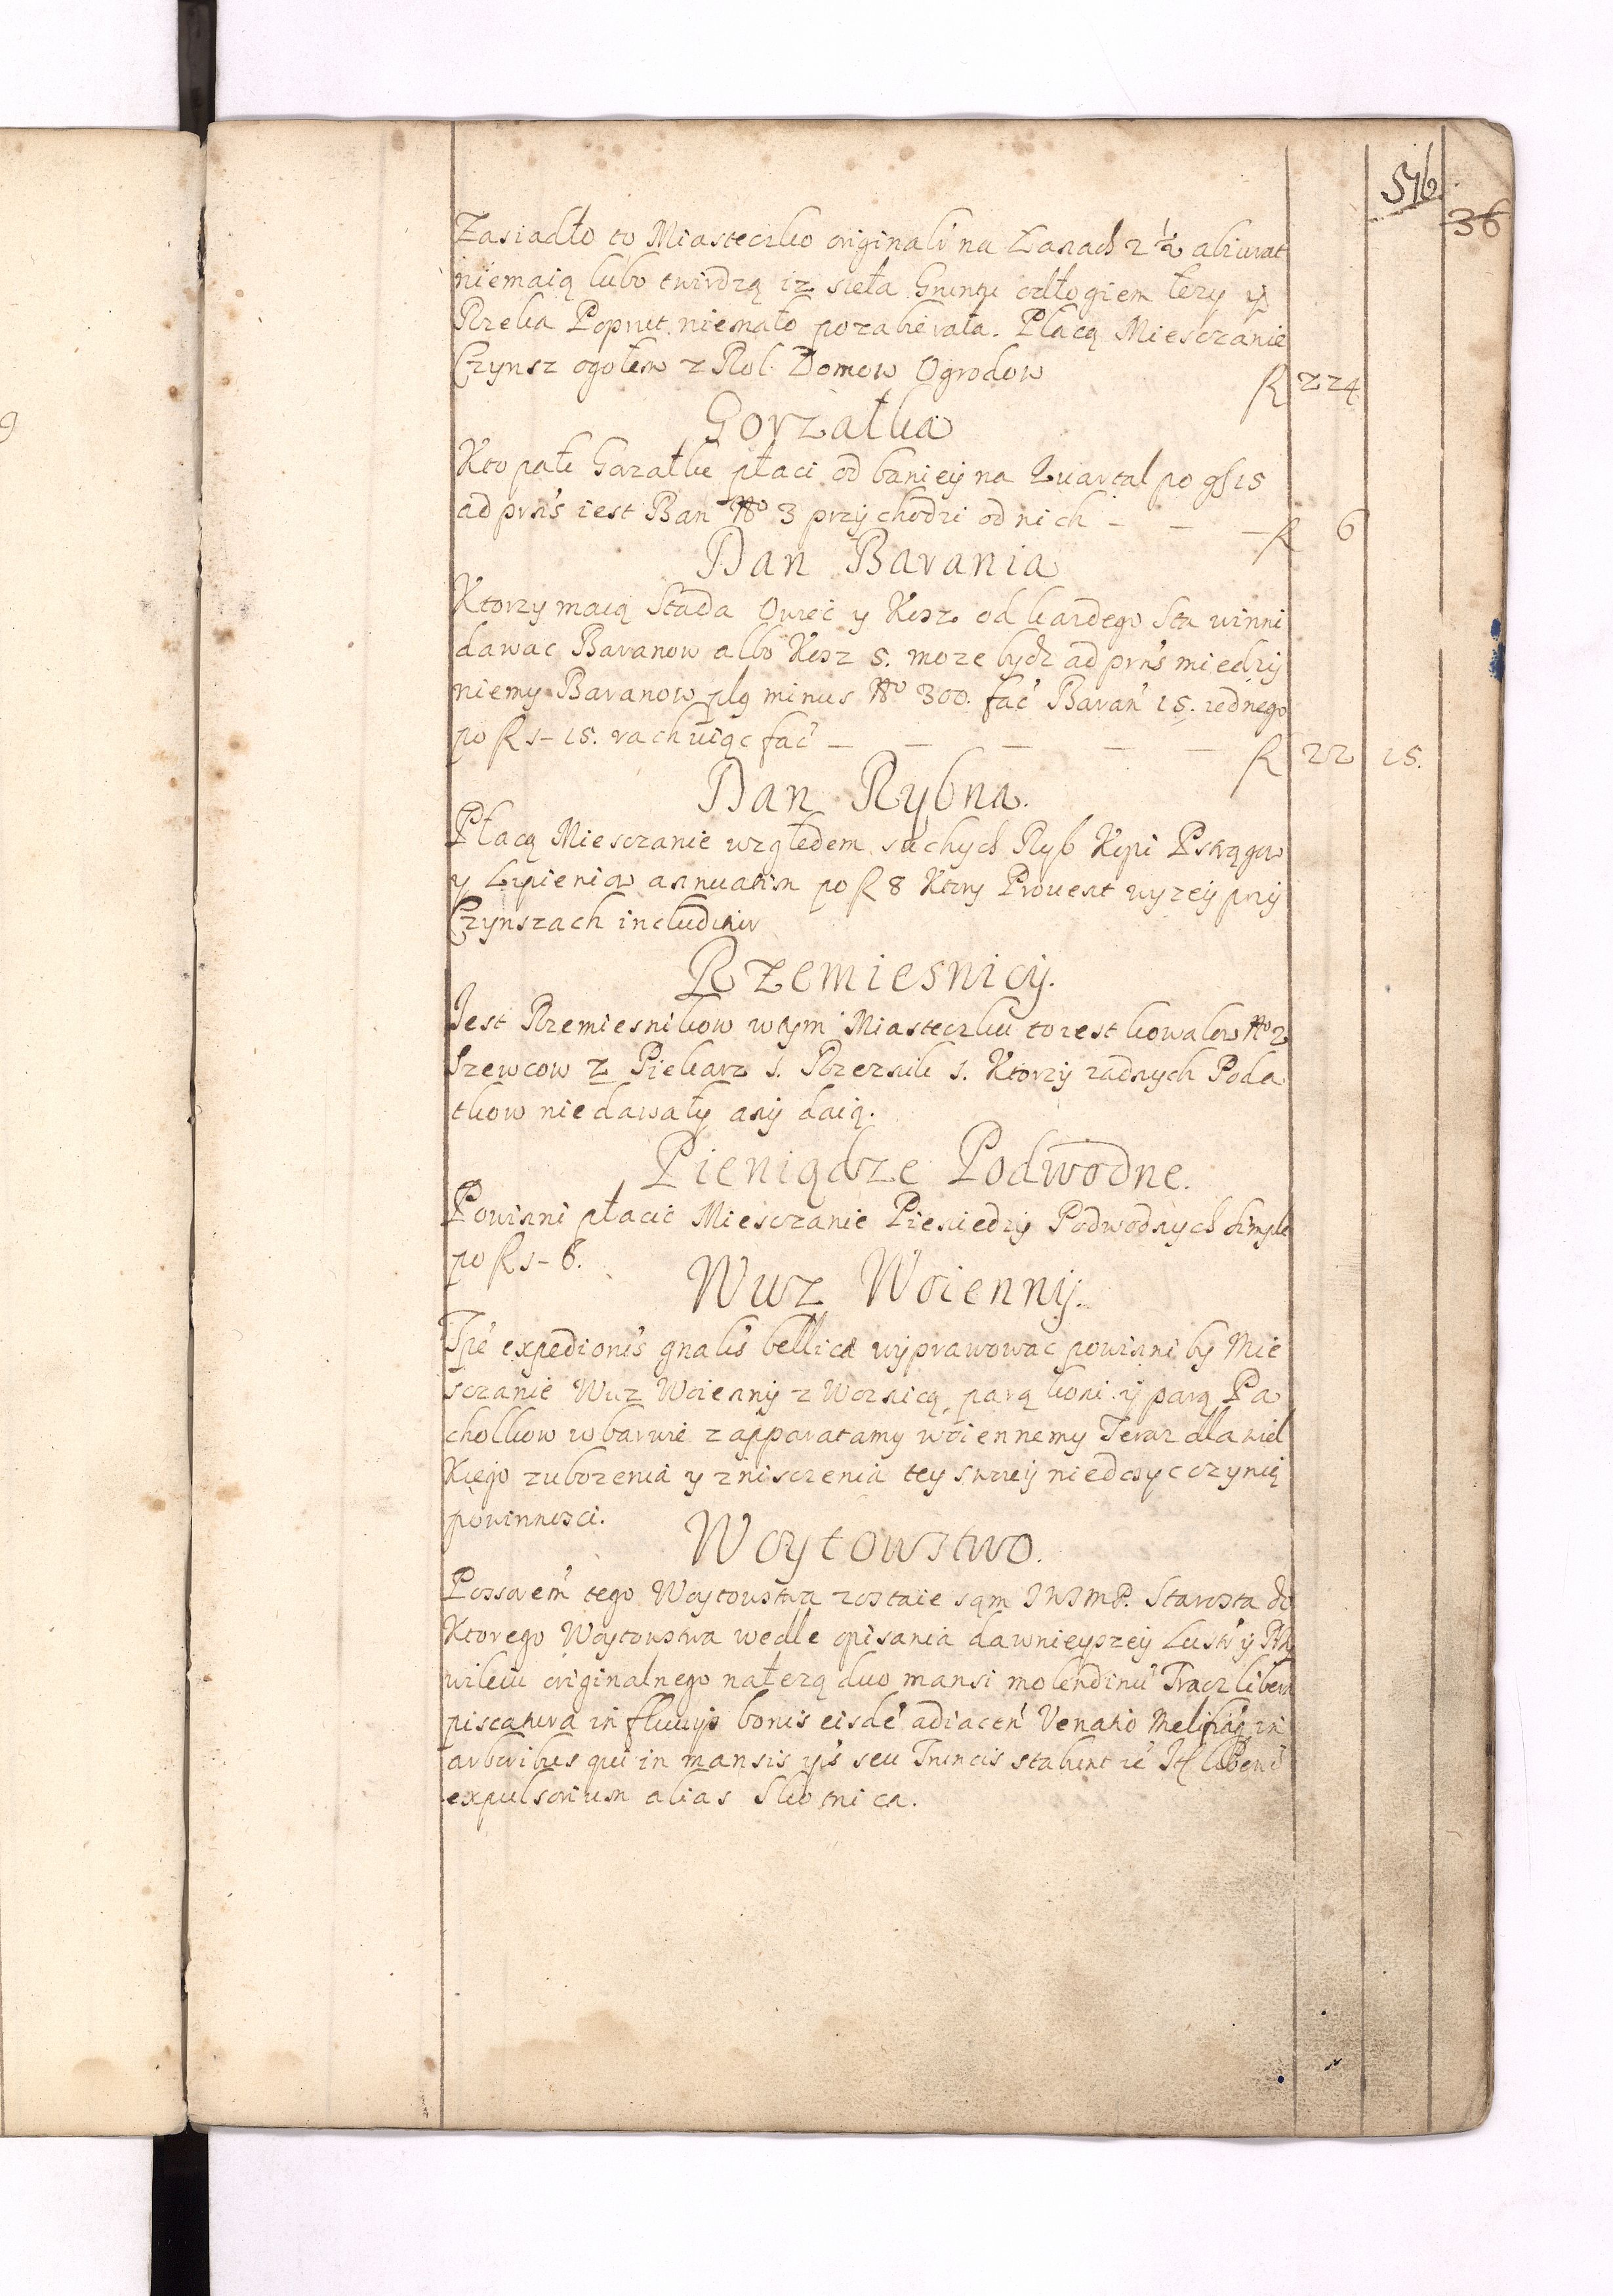 546
36
Zasiadło to Miasteczko originali na Łanach 2 ½ aliurat
niemaią lubo twirdzą iz sieła Gruntu odłogiem leży y
Rzeka Poprut niemało pozabierała. Płacą Miesczanie
Czynsz ogołem z Rol. Domow Ogrodow R 224
Gorzałka
Kto pali Gorzałke płaci od baniey na Quartal po gʃ 15
ad prns iest Ban No 3 przychodzi od nich – – – R 6
Dan Barania
Ktorzy maią Stada Owiec y Koz. od kazdego Sta winni
dawac Baranow albo Koz 5. moze bydz ad prns miedzy
niemy Baranow plq minus No 300. fac Baran 15. iednego
po R 1 – 15. rachuiąc fac – – – – – R 22 15.
Dan Rybna.
Płacą Miesczanie względem suchych Ryb Kopi Pstrągow
y Lipieniow annuatim po R 8 Ktory Prouent wyzey przy
Czynszach includitur
Rzemiesnicy.
Jest Rzemiesnikow w tym Miasteczku to iest kowalow No 2
Szewcow 2 Piekarz 1. Rzeznik 1. Ktorzy zadnych Poda
tkow nie dawały any daią.
Pieniądze Podwodne.
Powinni płacic Miesczanie Pieniedzy Podwodnych simpla
po R 1 – 6.
Wuz Woienny.
Tpe expedionis gnalis bellica wyprawowac powinni by Mie
sczanie Wuz Woienny z Woznicą, parą koni y parą Pa
cholkow w barwie z apparatamy woiennemy Teraz dla wiel
kiego zubozenia y znisczenia tey swoiey niedosyc czynią
powinnosci.
Woytowstwo.
Possorem tego Woytowstwa zostaie sąm JWJmP. Starosta do
Ktorego Woytowstwa wedle opisania dawnieyszey Lustr y Przy
wileiu originalnego nalezą duo mansi molendinu Tracz libera
piscatura in fluuijs bonis eisde adiacen Venatio in
arboribus qui in mansis ijs seu Truncis stabunt
expulsorium alias Skotnica.